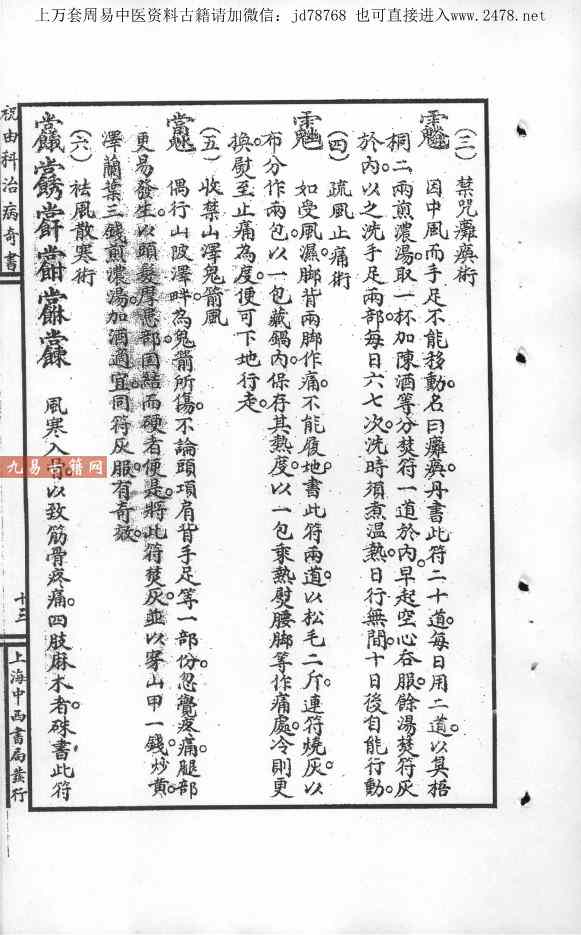 上万套周易中医资料古籍请加微信：jd78768 也可直接进入www.2478.net
祝由科治病奇書
(三)禁咒癱瘓術
因中風而手足不能移動。名曰癱瘓。丹書此符二十道。每日用二道。以真梧
桐二兩煎濃湯。取一杯加陳酒等分。焚符一道於內。早起空心吞服。餘湯焚符灰
於內。以之洗手足兩部。每日六七次。洗時須煮溫熱。日行無間。十日後自能行動。
(四)疏風止痛術
如受風濕。脚背兩脚作痛。不能履地。書此符兩道。以松毛二斤。連符燒灰。以
布分作兩包。以一包藏鍋內。保存其熱度。以一包乘熱熨腰脚等作痛處。冷則更
換。熨至止痛為度。便可下地行走。
(五)收禁山澤鬼箭風
偶行山陂澤畔。為鬼箭所傷。不論頭項肩背手足等一部份。忽覺疼痛。腿部
更易發生。以頭髮摩患部。團結而硬者便是。將此符焚灰。並以穿山甲一錢炒黃。
澤蘭葉三錢。煎濃湯。加酒適宜。同符灰服。有奇效。
(六)祛風散寒術
風寒入骨。以致筋骨疼痛。四肢麻木者。硃書此符
九易古籍网
十三
上海中西書局發行